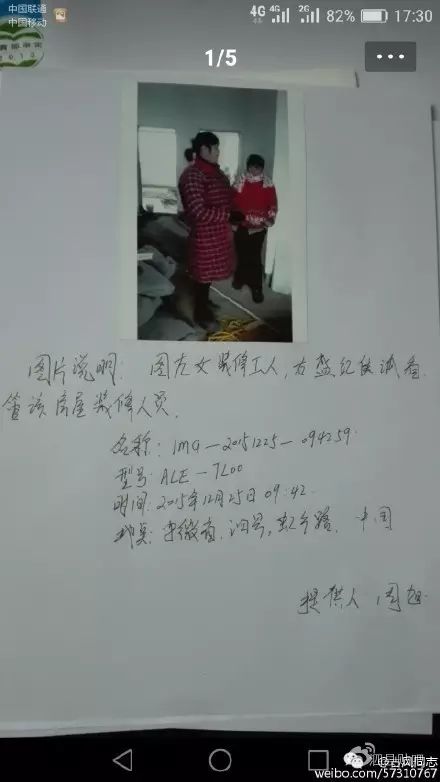 中国联通
中国移动
4G 4G 2G 82% 17:30
1/5
图片说明: 图左女装修工人,
管该房屋装修人员.
名称: IMG—20151225—094259.
型号: ALE—TL00
时间: 2015年12月25日 09:42.
地点: 安徽省, 泗县, 虹乡路, 中国
提供人 周旭
@古风同志
weibo.com/57310767